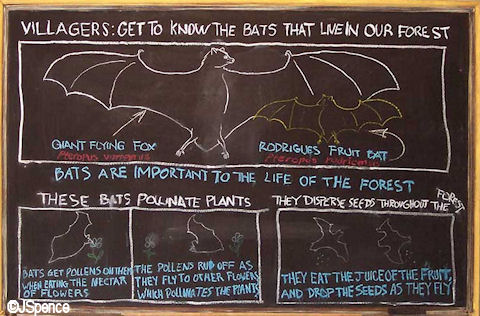 VILLAGERS: GET TO KNOW THE BATS THAT LIVE IN OUR FOREST
GIANT FLYING FOX
Pteropus vampyrus
RODRIGUES FRUIT BAT
Pteropus rodricensis
BATS ARE IMPORTANT TO THE LIFE OF THE FOREST
THESE BATS POLLINATE PLANTS
BATS GET POLLENS ON THEM
WHEN EATING THE NECTAR
OF FLOWERS
THE POLLENS RUB OFF AS
THEY FLY TO OTHER FLOWERS
WHICH POLLINATES THE PLANTS
THEY DISPERSE SEEDS THROUGHOUT THE FOREST
THEY EAT THE JUICE OF THE FRUIT,
AND DROP THE SEEDS AS THEY FLY
©JSpence